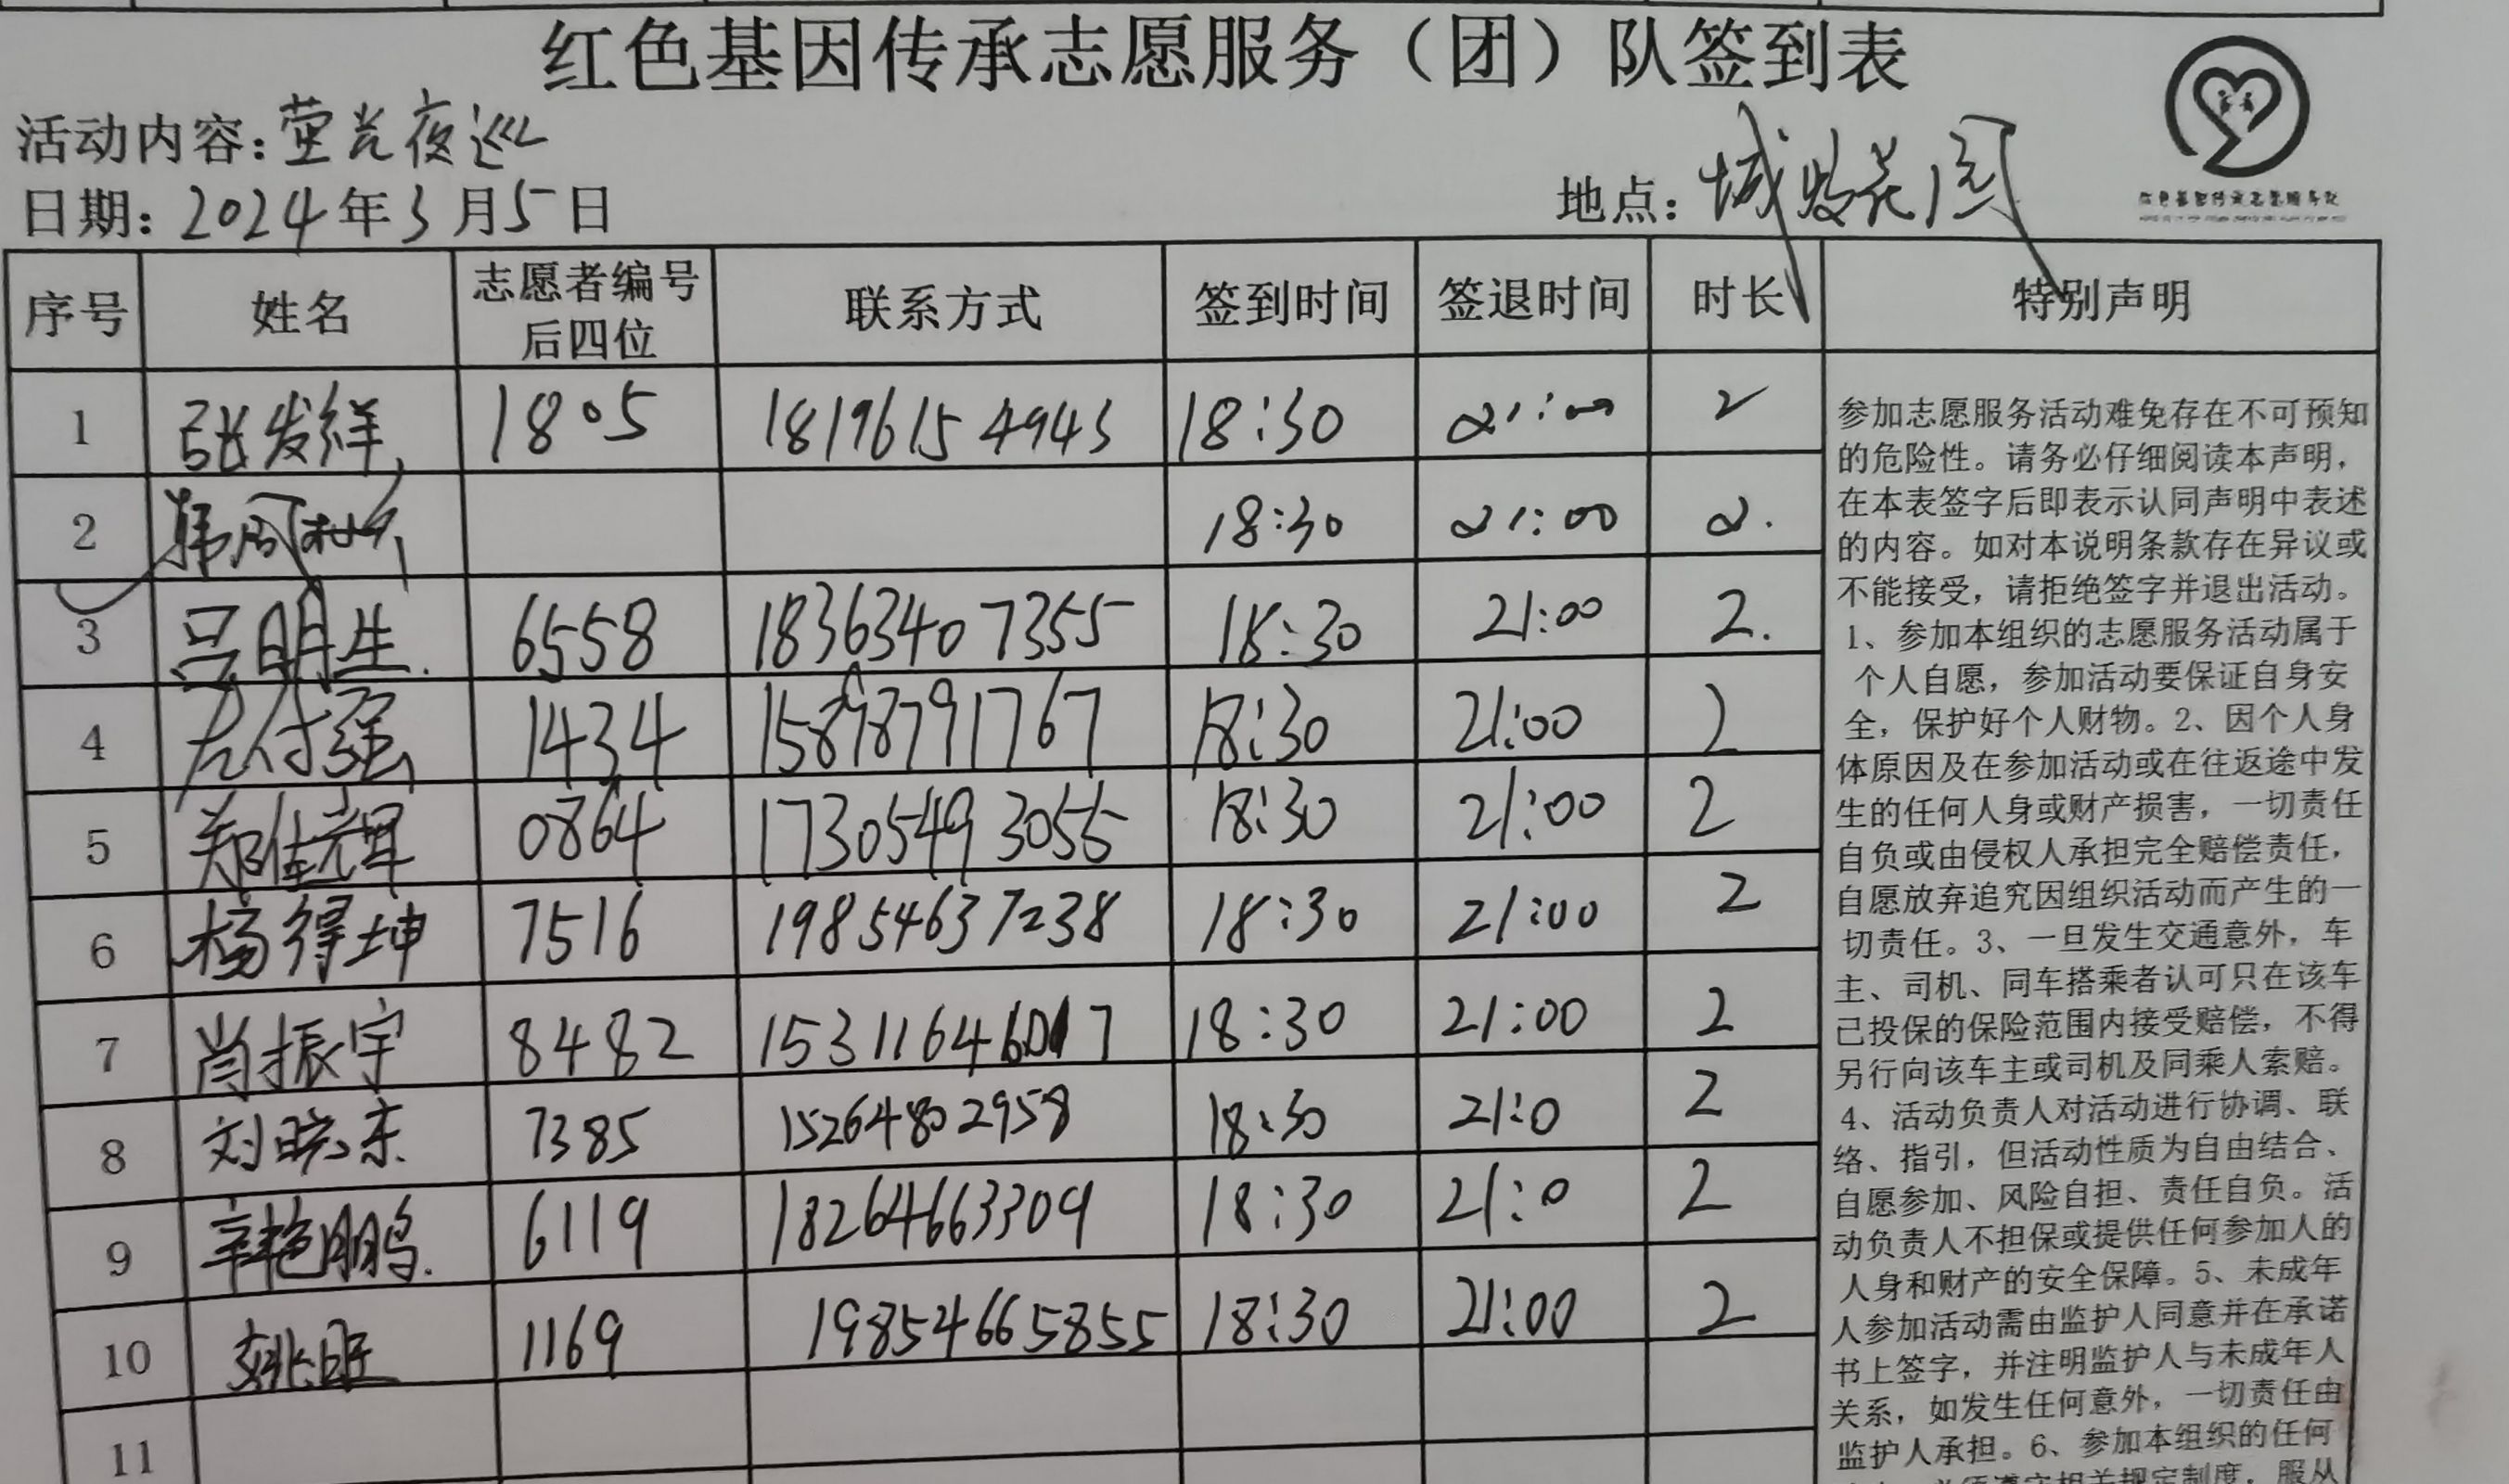 红色基因传承志愿服务（团）队签到表
活动内容：萤光夜巡
日期：2024年3月5日
地点：城投花园
序号 姓名 志愿者编号后四位 联系方式 签到时间 签退时间 时长 特别声明
1 张发祥 1805 18196154943 18:30 21:00 2
2 18:30 21:00 2.
3 吕明生. 6558 18363407355 18:30 21:00 2.
4 左付强 1434 15898791767 18:30 21:00 2
5 郑佳辉 0864 17305493055 18:30 21:00 2
6 杨得坤 7516 19854637238 18:30 21:00 2
7 肖振宇 8482 15311646017 18:30 21:00 2
8 刘晓东 7385 15264802958 18:30 21:0 2
9 辛艳鹏. 6119 18264663309 18:30 21:0 2
10 姚旺 1169 19854665855 18:30 21:00 2
11
参加志愿服务活动难免存在不可预知
的危险性。请务必仔细阅读本声明，
在本表签字后即表示认同声明中表述
的内容。如对本说明条款存在异议或
不能接受，请拒绝签字并退出活动。
1、参加本组织的志愿服务活动属于
个人自愿，参加活动要保证自身安
全，保护好个人财物。2、因个人身
体原因及在参加活动或在往返途中发
生的任何人身或财产损害，一切责任
自负或由侵权人承担完全赔偿责任，
自愿放弃追究因组织活动而产生的一
切责任。3、一旦发生交通意外，车
主、司机、同车搭乘者认可只在该车
已投保的保险范围内接受赔偿，不得
另行向该车主或司机及同乘人索赔。
4、活动负责人对活动进行协调、联
络、指引，但活动性质为自由结合、
自愿参加、风险自担、责任自负。活
动负责人不担保或提供任何参加人的
人身和财产的安全保障。5、未成年
人参加活动需由监护人同意并在承诺
书上签字，并注明监护人与未成年人
关系，如发生任何意外，一切责任由
监护人承担。6、参加本组织的任何